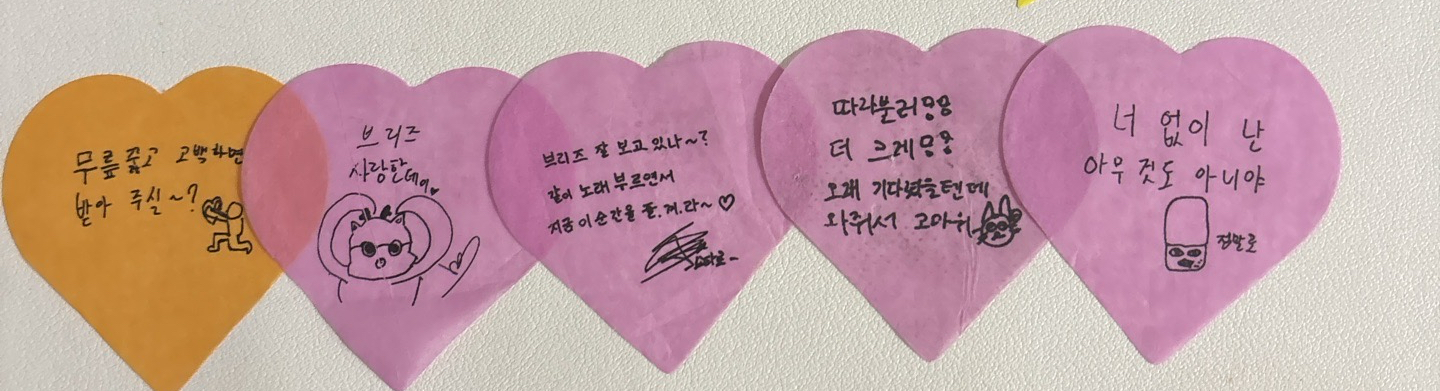 무릎 꿇고 고백하면
받아 주실~?
브리즈
사랑한데이♥
브리즈 잘 보고 있나~?
같이 노래 부르면서
지금 이 순간을 즐.겨.라~♡
따라불러
더 크게
오래 기다렸을텐데
와줘서 고마워
너 없이 난
아무 것도 아니야
정말로